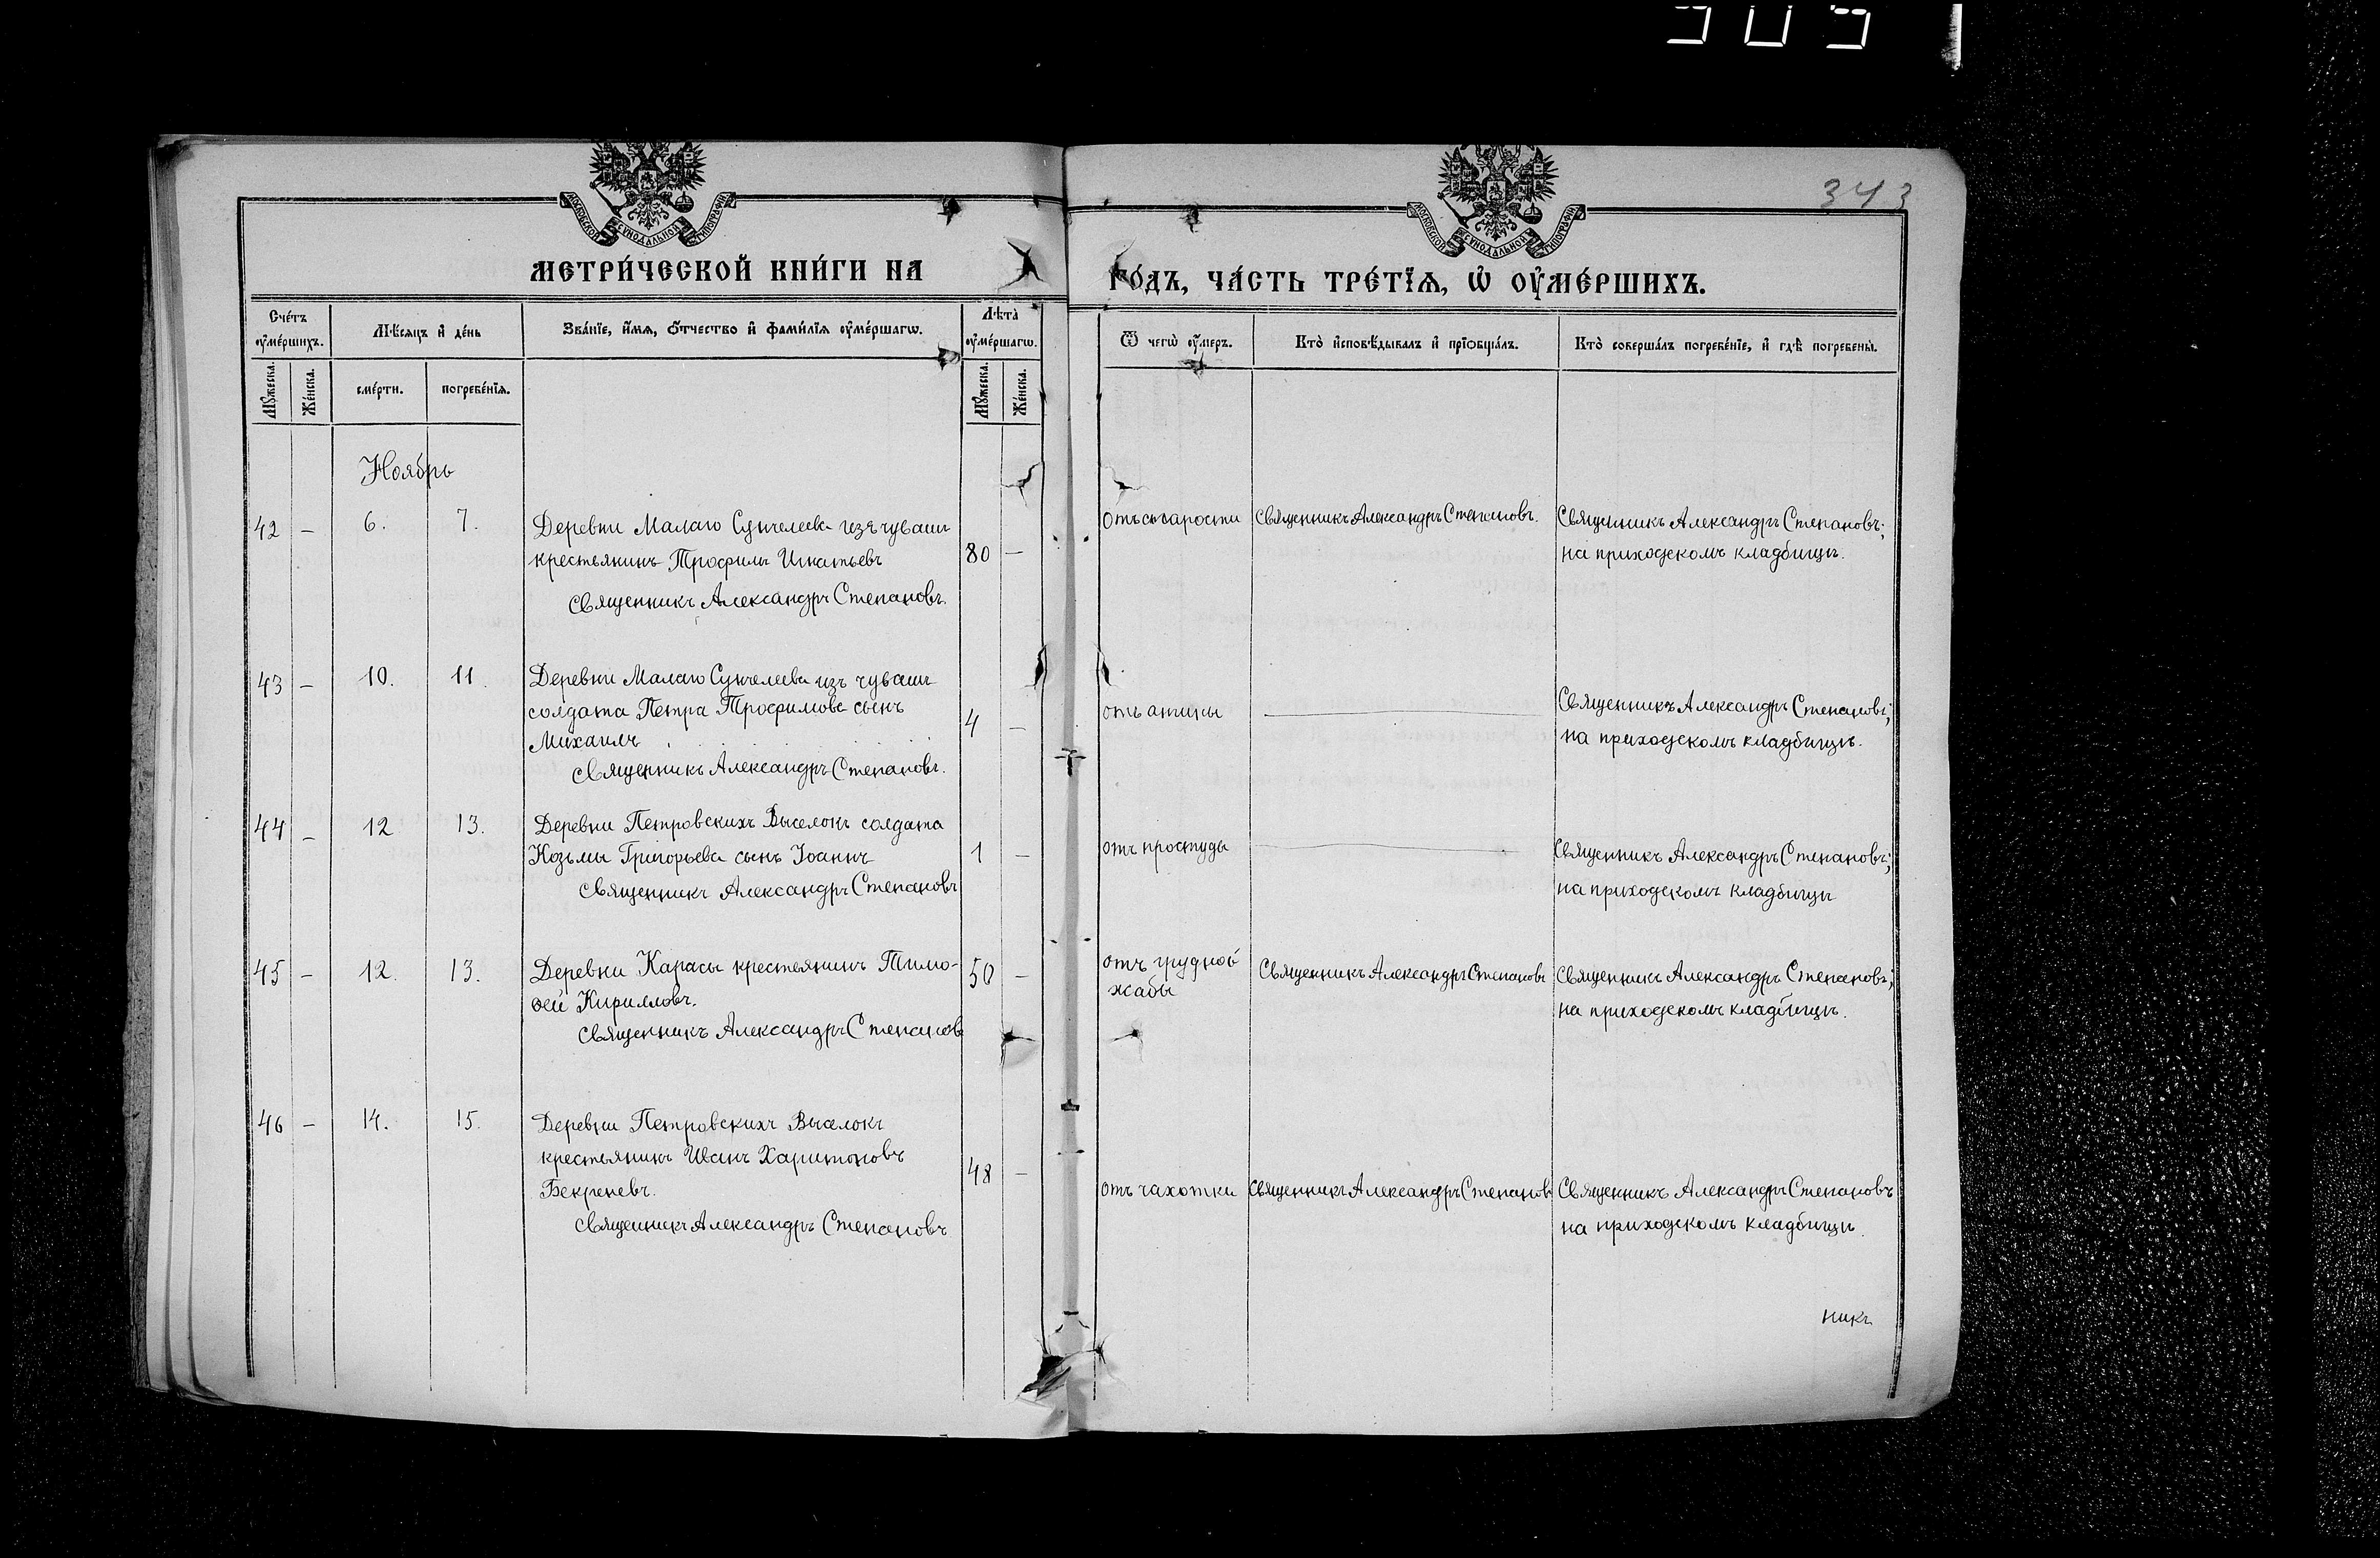 343
МОСКОВСКОЙ СѴНОДАЛЬНОЙ ТИПОГРАФІИ
МОСКОВСКОЙ СѴНОДАЛЬНОЙ ТИПОГРАФІИ
МЕТРИ́ЧЕСКОЙ КНИ́ГИ НА ГО́ДЪ, ЧА́СТЬ ТРЕ́ТІѦ, Ѡ҆ ОУ҆МЕ́РШИХЪ.
Сче́тъ оу҆ме́ршихъ.
Мѣ́сяцъ и҆ де́нь
Зва́нїе, и҆́мѧ, ѻ҆́тчество и҆ фами́лїѧ оу҆ме́ршагѡ.
Лѣ́та оу҆ме́ршагѡ.
Ѿ чегѡ̀ оу҆́меръ.
Кто̀ и҆сповѣ́дывалъ и҆ прїѡбща́лъ.
Кто̀ соверша́лъ погребе́нїе, и҆ гдѣ̀ погребены̀.
Мꙋ́жеска. Же́нска. сме́рти. погребе́нїѧ. Мꙋ́жеска. Же́нска.
Ноябрь
42 – 6. 7. Деревни Малаго Сунчелеева изъ чувашъ
крестьянинъ Трофимъ Игнатьевъ 80 –
Священникъ Александръ Степановъ.
Отъ старости Священникъ Александръ Степановъ. Священникъ Александръ Степановъ;
на приходскомъ кладбищѣ.
43 – 10. 11. Деревни Малаго Сунчелеева изъ чувашъ
солдата Петра Трофимова сынъ 4 –
Михаилъ
Священникъ Александръ Степановъ.
отъ ангины — Священникъ Александръ Степановъ;
на приходскомъ кладбищѣ.
44 – 12 13. Деревни Петровскихъ Выселокъ солдата
Козьмы Григорьева сынъ Іоаннъ 1 –
Священникъ Александръ Степановъ
отъ простуды — Священникъ Александръ Степановъ;
на приходскомъ кладбищѣ
45 – 12. 13. Деревни Карасы крестьянинъ Тимо- 50 –
ѳей Кирилловъ.
Священникъ Александръ Степановъ
отъ грудной Священникъ Александръ Степановъ Священникъ Александръ Степановъ;
жабы на приходскомъ кладбищѣ.
46 – 14. 15. Деревни Петровскихъ Выселокъ
крестьянинъ Иванъ Харитоновъ 48 –
Бекреневъ.
Священникъ Александръ Степановъ
отъ чахотки Священникъ Александръ Степановъ Священникъ Александръ Степановъ
на приходскомъ кладбищѣ.
никъ